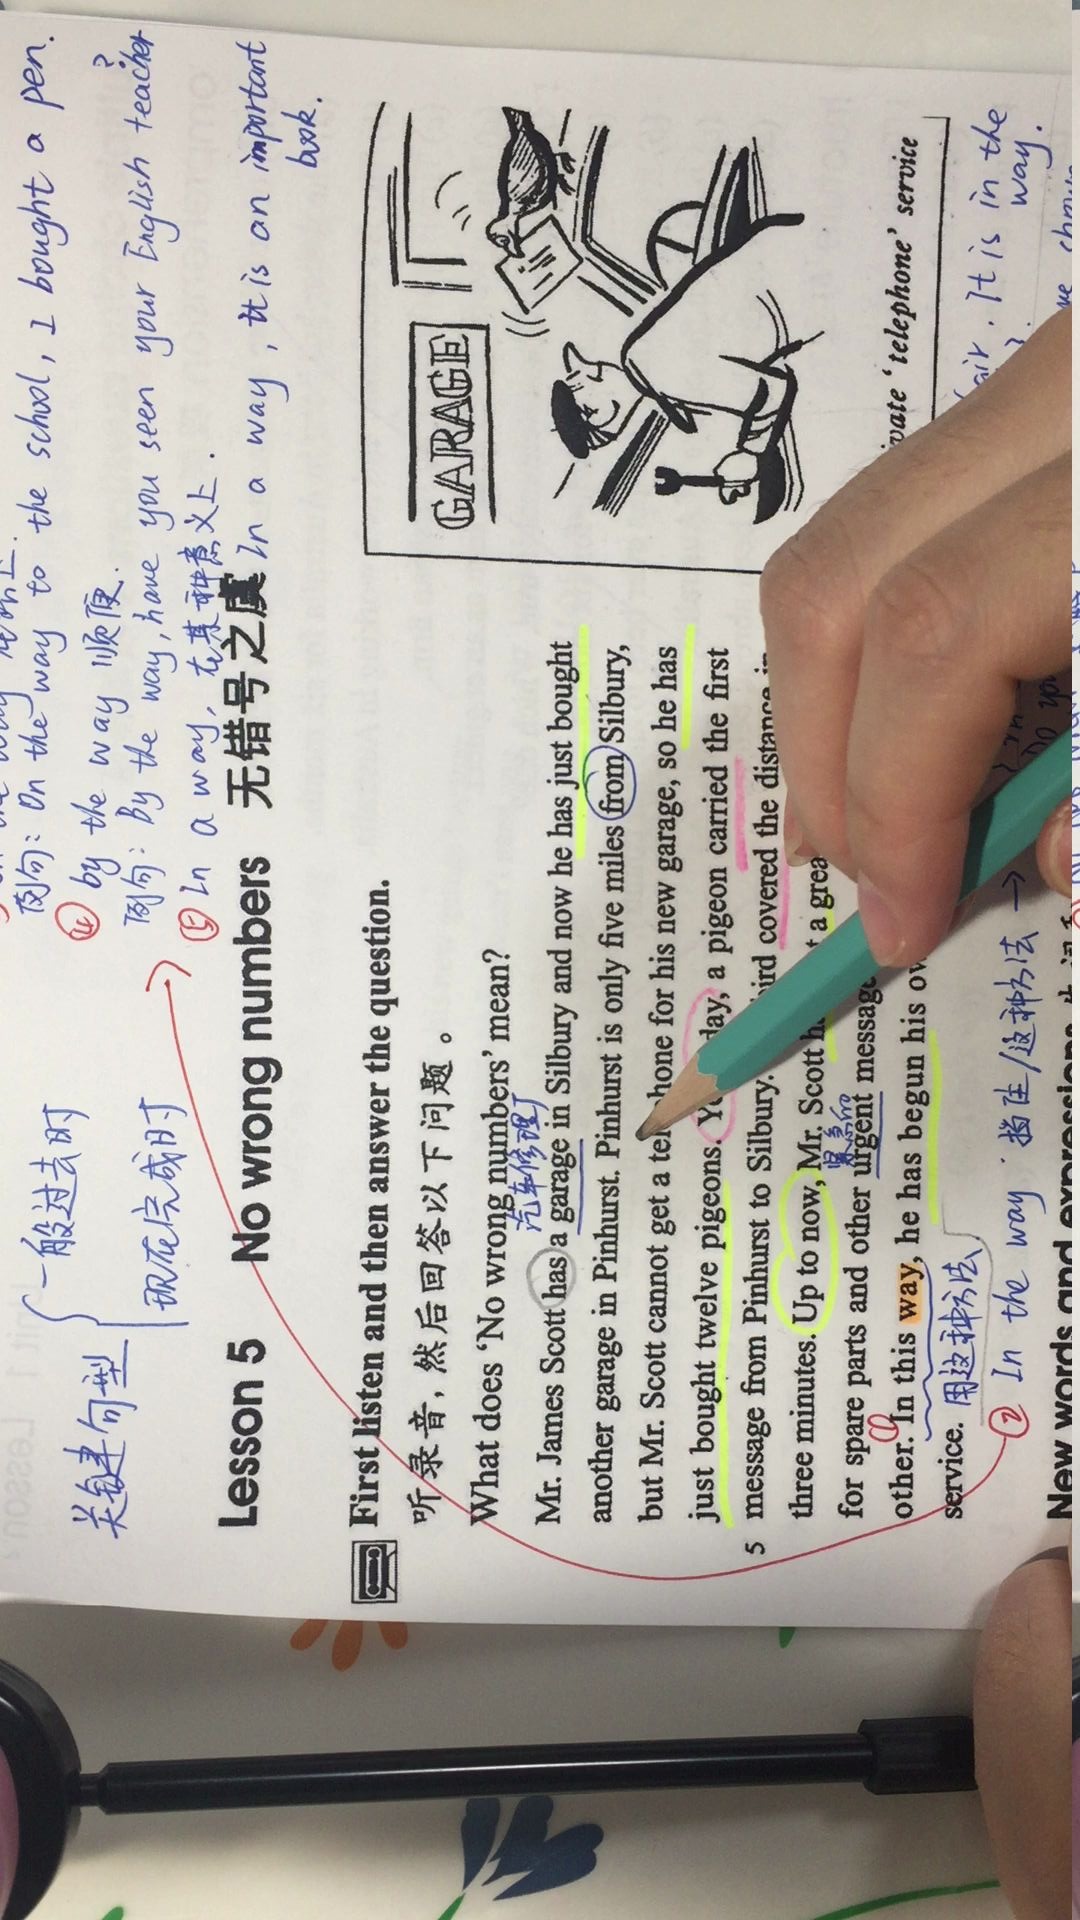 关键句型
一般过去时
现在完成时
例句: On the way to the school, I bought a pen.
④ by the way 顺便.
例句: By the way, have you seen your English teacher?
⑤ In a way, 在某种意义上.
In a way, it is an important
book.
Lesson 5 No wrong numbers 无错号之虞
First listen and then answer the question.
听录音，然后回答以下问题。
What does 'No wrong numbers' mean?
汽车修理厂
Mr. James Scott has a garage in Silbury and now he has just bought
another garage in Pinhurst. Pinhurst is only five miles from Silbury,
but Mr. Scott cannot get a tel hone for his new garage, so he has
just bought twelve pigeons. Ye day, a pigeon carried the first
5 message from Pinhurst to Silbury. ird covered the distance in
three minutes. Up to now, Mr. Scott h t a grea
紧急的
for spare parts and other urgent message
①
other. In this way, he has begun his ow
service. 用这种方法
② In the way 挡住/这种方法 →
GARAGE
ivate 'telephone' service
air. It is in the
way.
New words and expressions